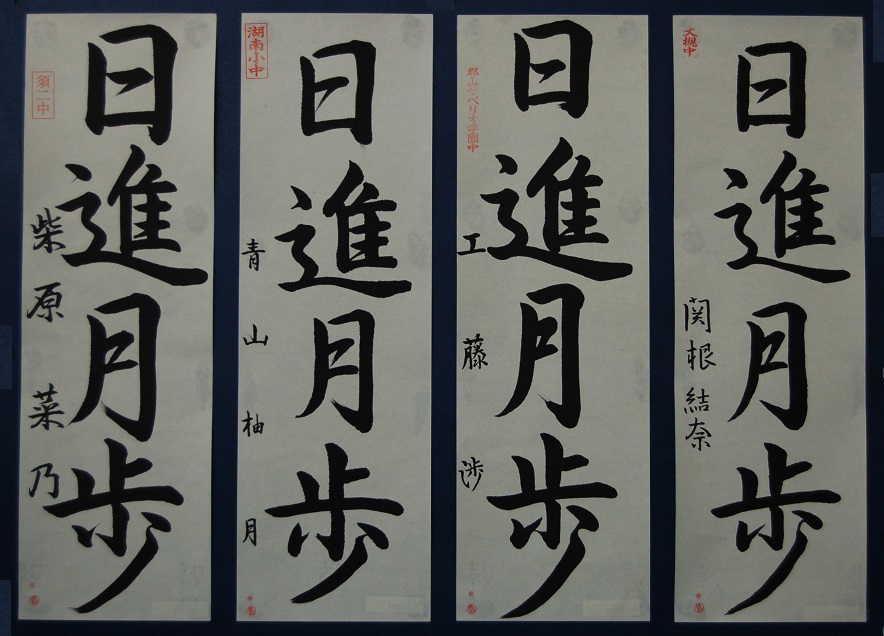 日進月歩
須二中
柴原菜乃
日進月歩
湖南小中
青山柚月
日進月歩
郡山ザベリオ学園中
工藤渉
日進月歩
大槻中
関根結奈